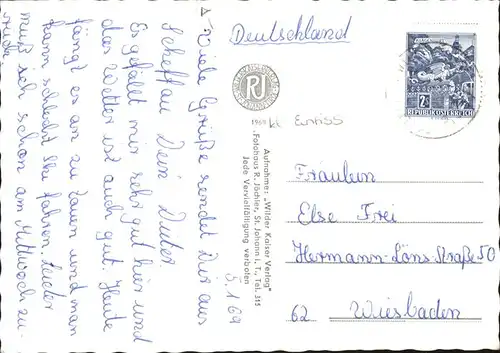 5.1.69
Viele Grüße sendet Dir aus
Scheffau Dein Dieter.
Es gefällt mir sehr gut hier und
das Wetter ist auch gut. Heute
fängt es an zu tauen und man
kann schlecht Ski fahren. Leider
muß ich schon am Mittwoch zu-
rück.
Deutschland
RJ
1969
Aufnahme: „Wilder Kaiser Verlag"
„Fotohaus R. Jöchler, St. Johann i. T., Tel. 315
Jede Vervielfältigung verboten
2S
REPUBLIK ÖSTERREICH
Fräulein
Else Frei
Hermann-Löns-Straße 50
62 Wiesbaden